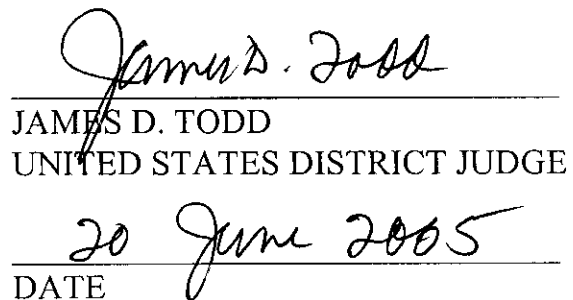 James D. Todd
JAMES D. TODD
UNITED STATES DISTRICT JUDGE
20 June 2005
DATE